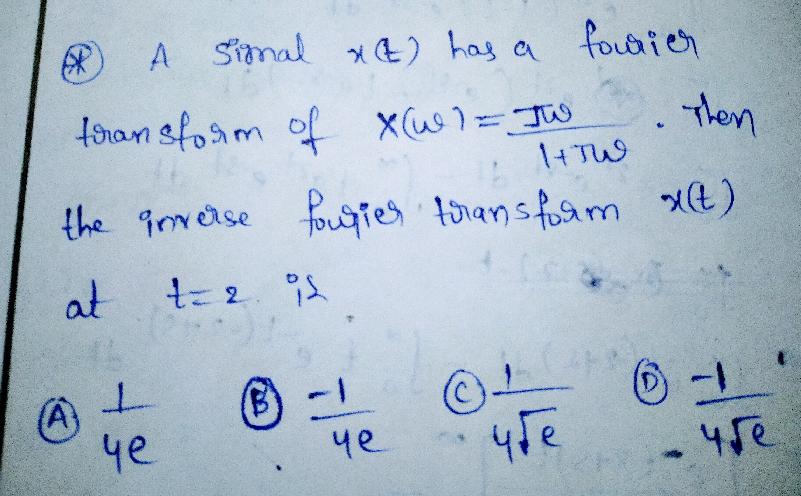 (*) A Signal x(t) has a fourier
transform of X(ω) = Jω / 1+Jω . Then
the inverse fourier transform x(t)
at t=2 is
(A) 1/4e (B) -1/4e (C) 1/4√e (D) -1/4√e